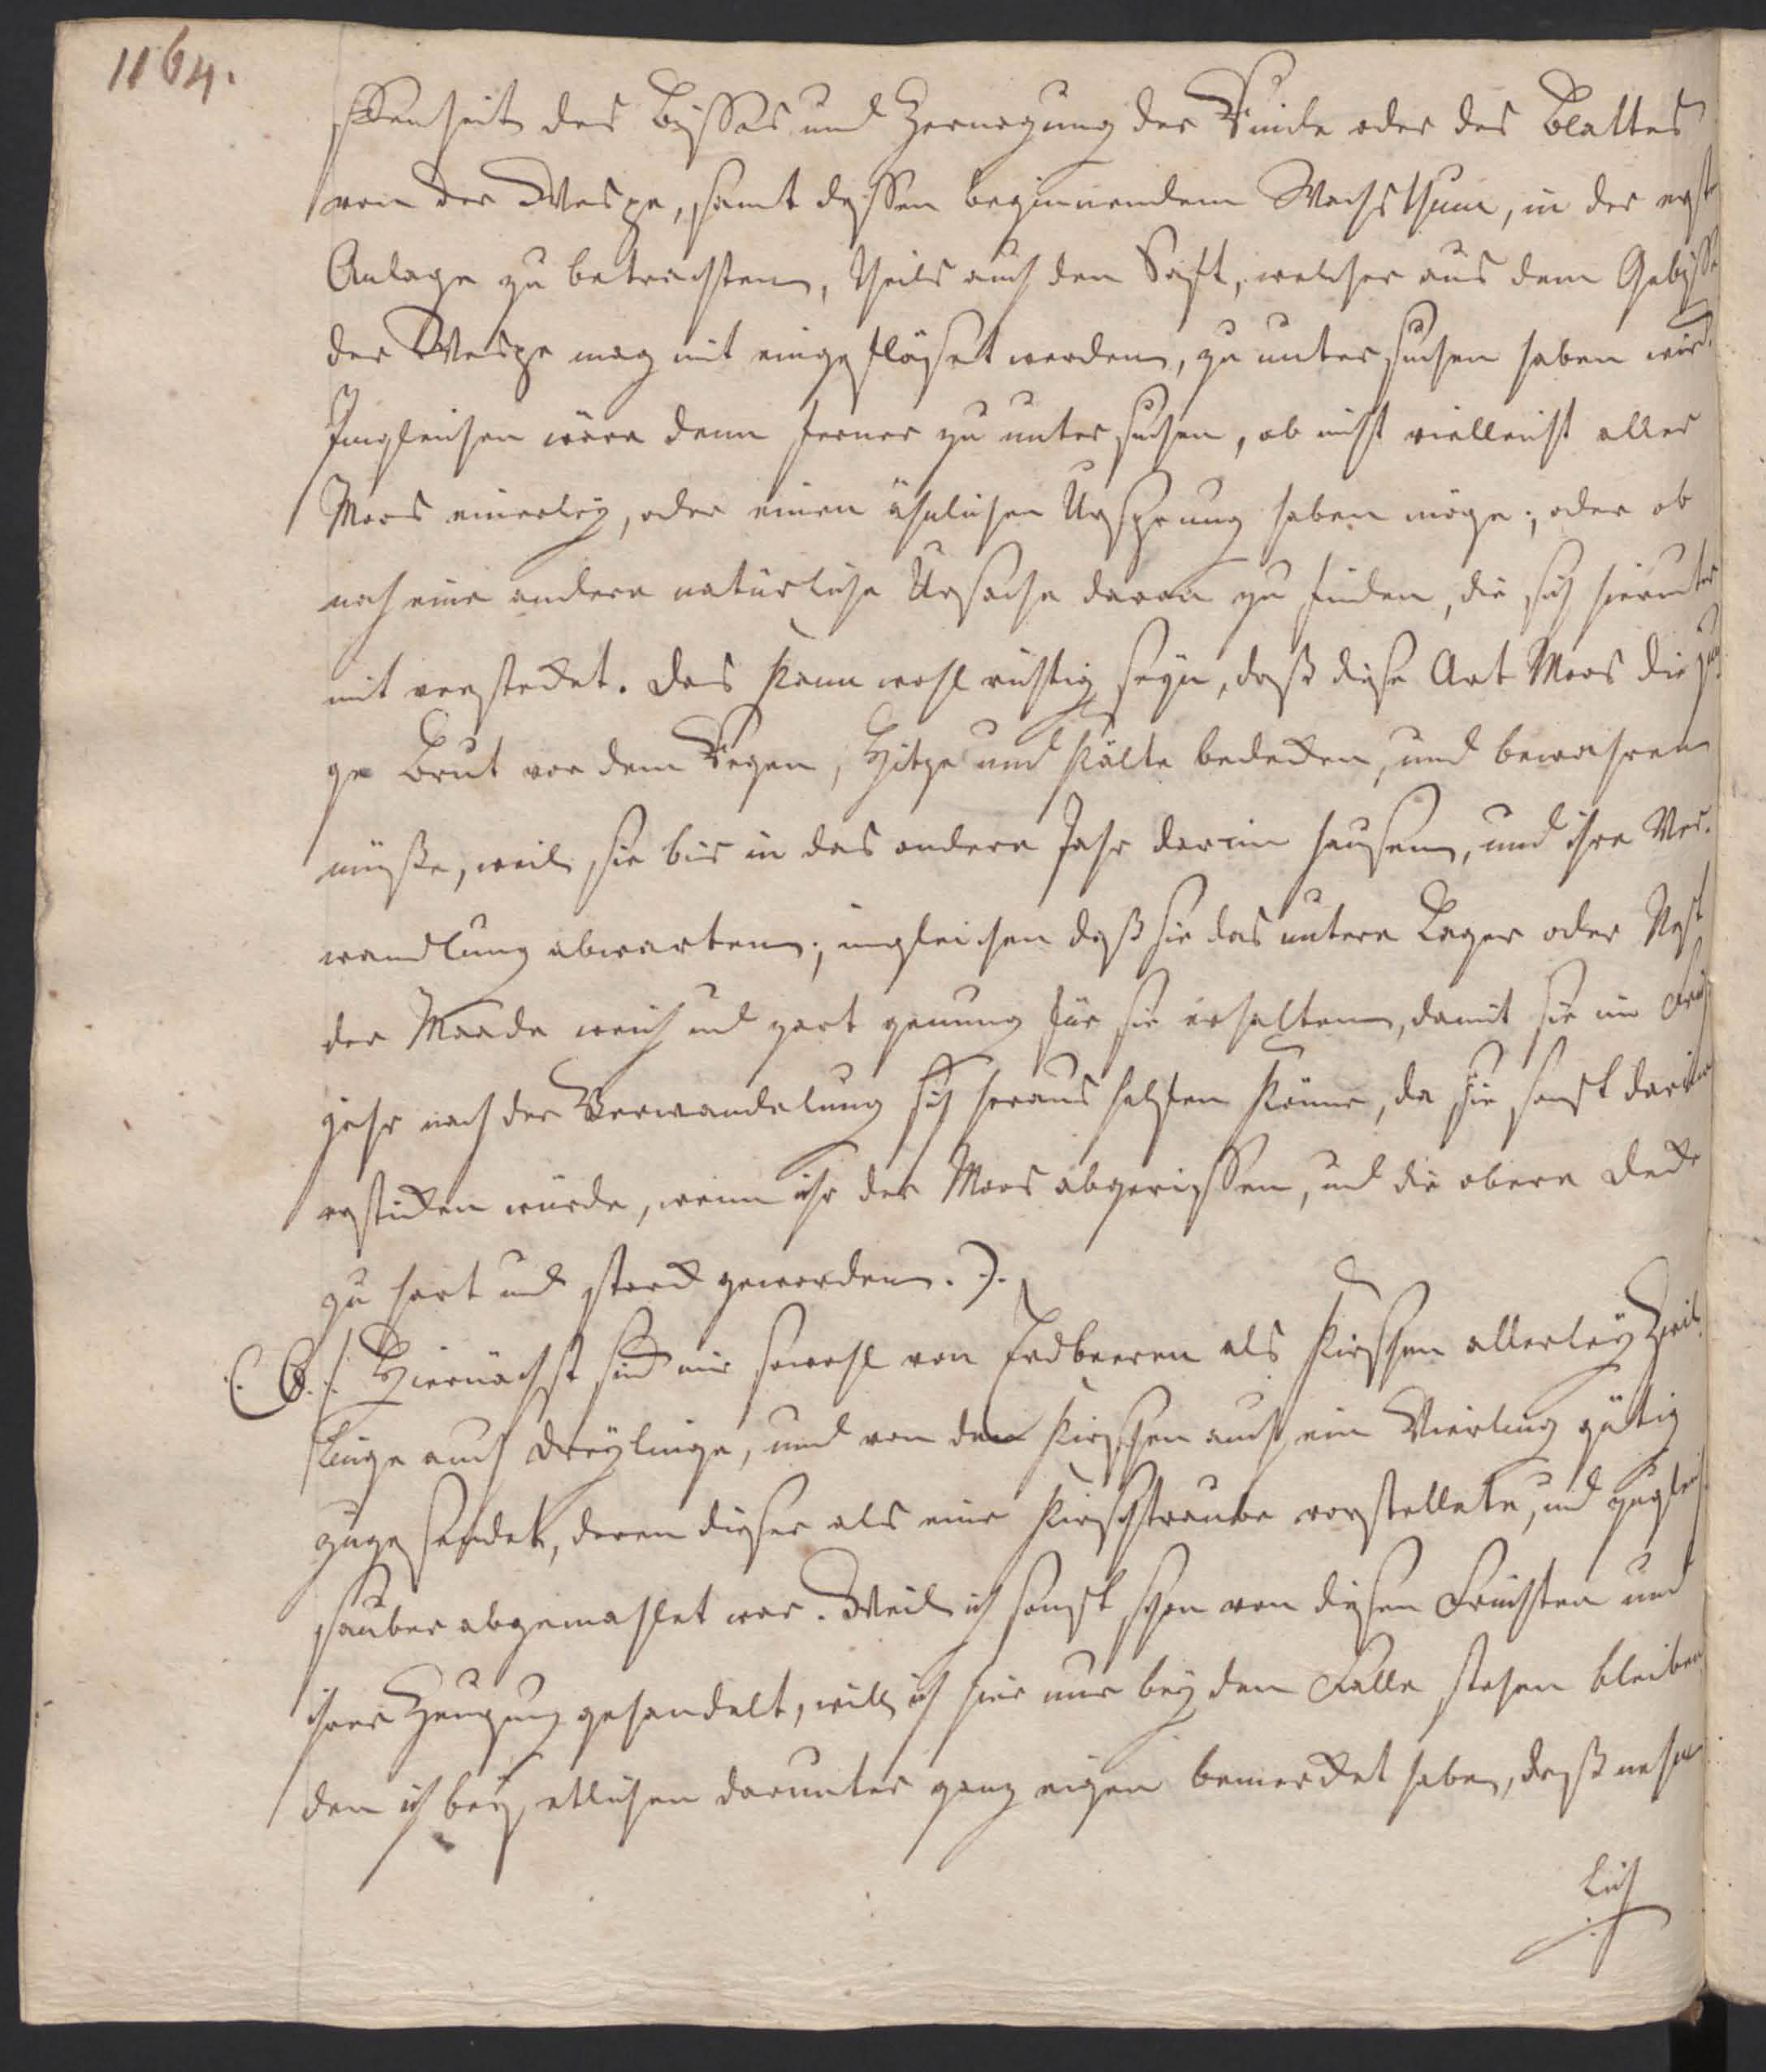 1164.
ffenheit des Bisses und Zernagung der Rinde oder des Blattes
von der Wespe, samt dessen beginnendem Wachsthum, in der erst
Anlage zu betrachten, theils auch den Saft, welcher aus dem Gebisse
der Wespe mag mit eingeflößet werden, zu untersuchen haben wird.
Ingleichen wäre denn ferner zu untersuchen, ob nicht vielleicht alles
Moos einerley, oder einen ähnlichen Ursprung haben möge; oder ob
noch eine andere natürliche Ursache davon zu finden, die sich hierunter
mit verstecket. Das kann wohl richtig seyn, daß diese Art Moos die jun
ge Brut vor dem Regen, Hitze und Kälte bedecken, und bewahren
müße, weil sie bis in das andere Jahr darein hausen, und ihre Ver-
wandlung abwarten; ingleichen daß sie das untere Lager oder Nest
der Maade weich und zart genung für sie erhalten, damit sie im Früh
jahr nach der Verwandelung sich heraus helfen könne, da sie sonst darin
ersticken würde, wenn ihr das Moos abgerissen, und die obere Decke
zu hart und starck geworden.).
(. C. :/ Hiernächst sind mir sowohl von Erdbeeren als Kirschen allerley Zwil
linge auch Dreylinge, und von den Kirschen auch ein Vierling gütig
zugesendet, deren dieser als eine Kirschtraube vorstellete, und zugleich
sauber abgemahlet war. Weil ich sonst schon von diesen Früchten und
ihrer Zeugung gehandelt, will ich hier nur bey dem Falle stehen bleiben,
den ich bey etlichen darunter ganz eigen bemercket habe, daß nehm
lich